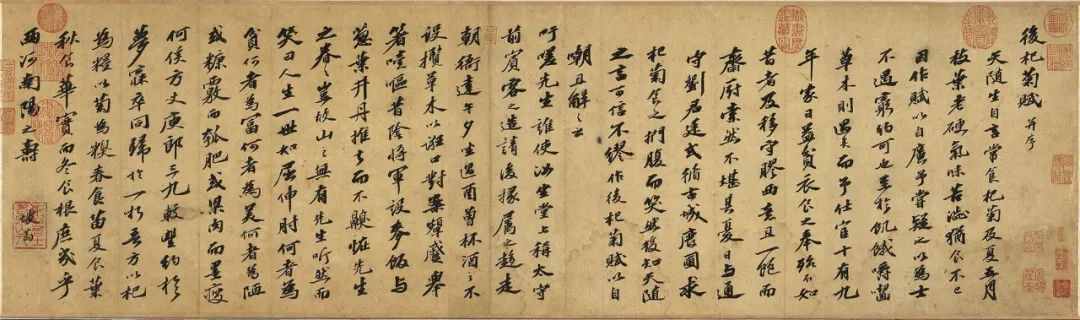 後杞菊賦 并序
天隨生自言常食杞菊及夏五月
枝葉老硬氣味苦澀猶食不已
因作賦以自廣予嘗疑之以為士
不遇窮約可也至於飢餓嚼齧
草木則過矣而予仕宦十有九
年家日益貧衣食之奉殆不如
昔者及移守膠西意且一飽而
齋廚索然不堪其憂日與通
守劉君廷式循古城廢圃求
杞菊食之捫腹而笑然後知天隨
之言可信不繆作後杞菊賦以自
嘲且解之云
吁嗟先生誰使汝坐堂上稱太守
前賓客之造請後掾屬之趨走
朝衙達午夕坐過酉曾杯酒之不
設攬草木以誑口對案顰蹙舉
箸噎嘔昔陰將軍設麥飯與
葱葉井丹推去而不嗅怪先生
之眷々豈故山之無有先生听然而
笑曰人生一世如屈伸肘何者為
貧何者為富何者為美何者為陋
或糠覈而瓠肥或粱肉而墨瘦
何侯方丈庾郎三九較豐約於
夢寐卒同歸於一朽吾方以杞
為糧以菊為糗春食苗夏食葉
秋食華實而冬食根庶幾乎
西河南陽之壽